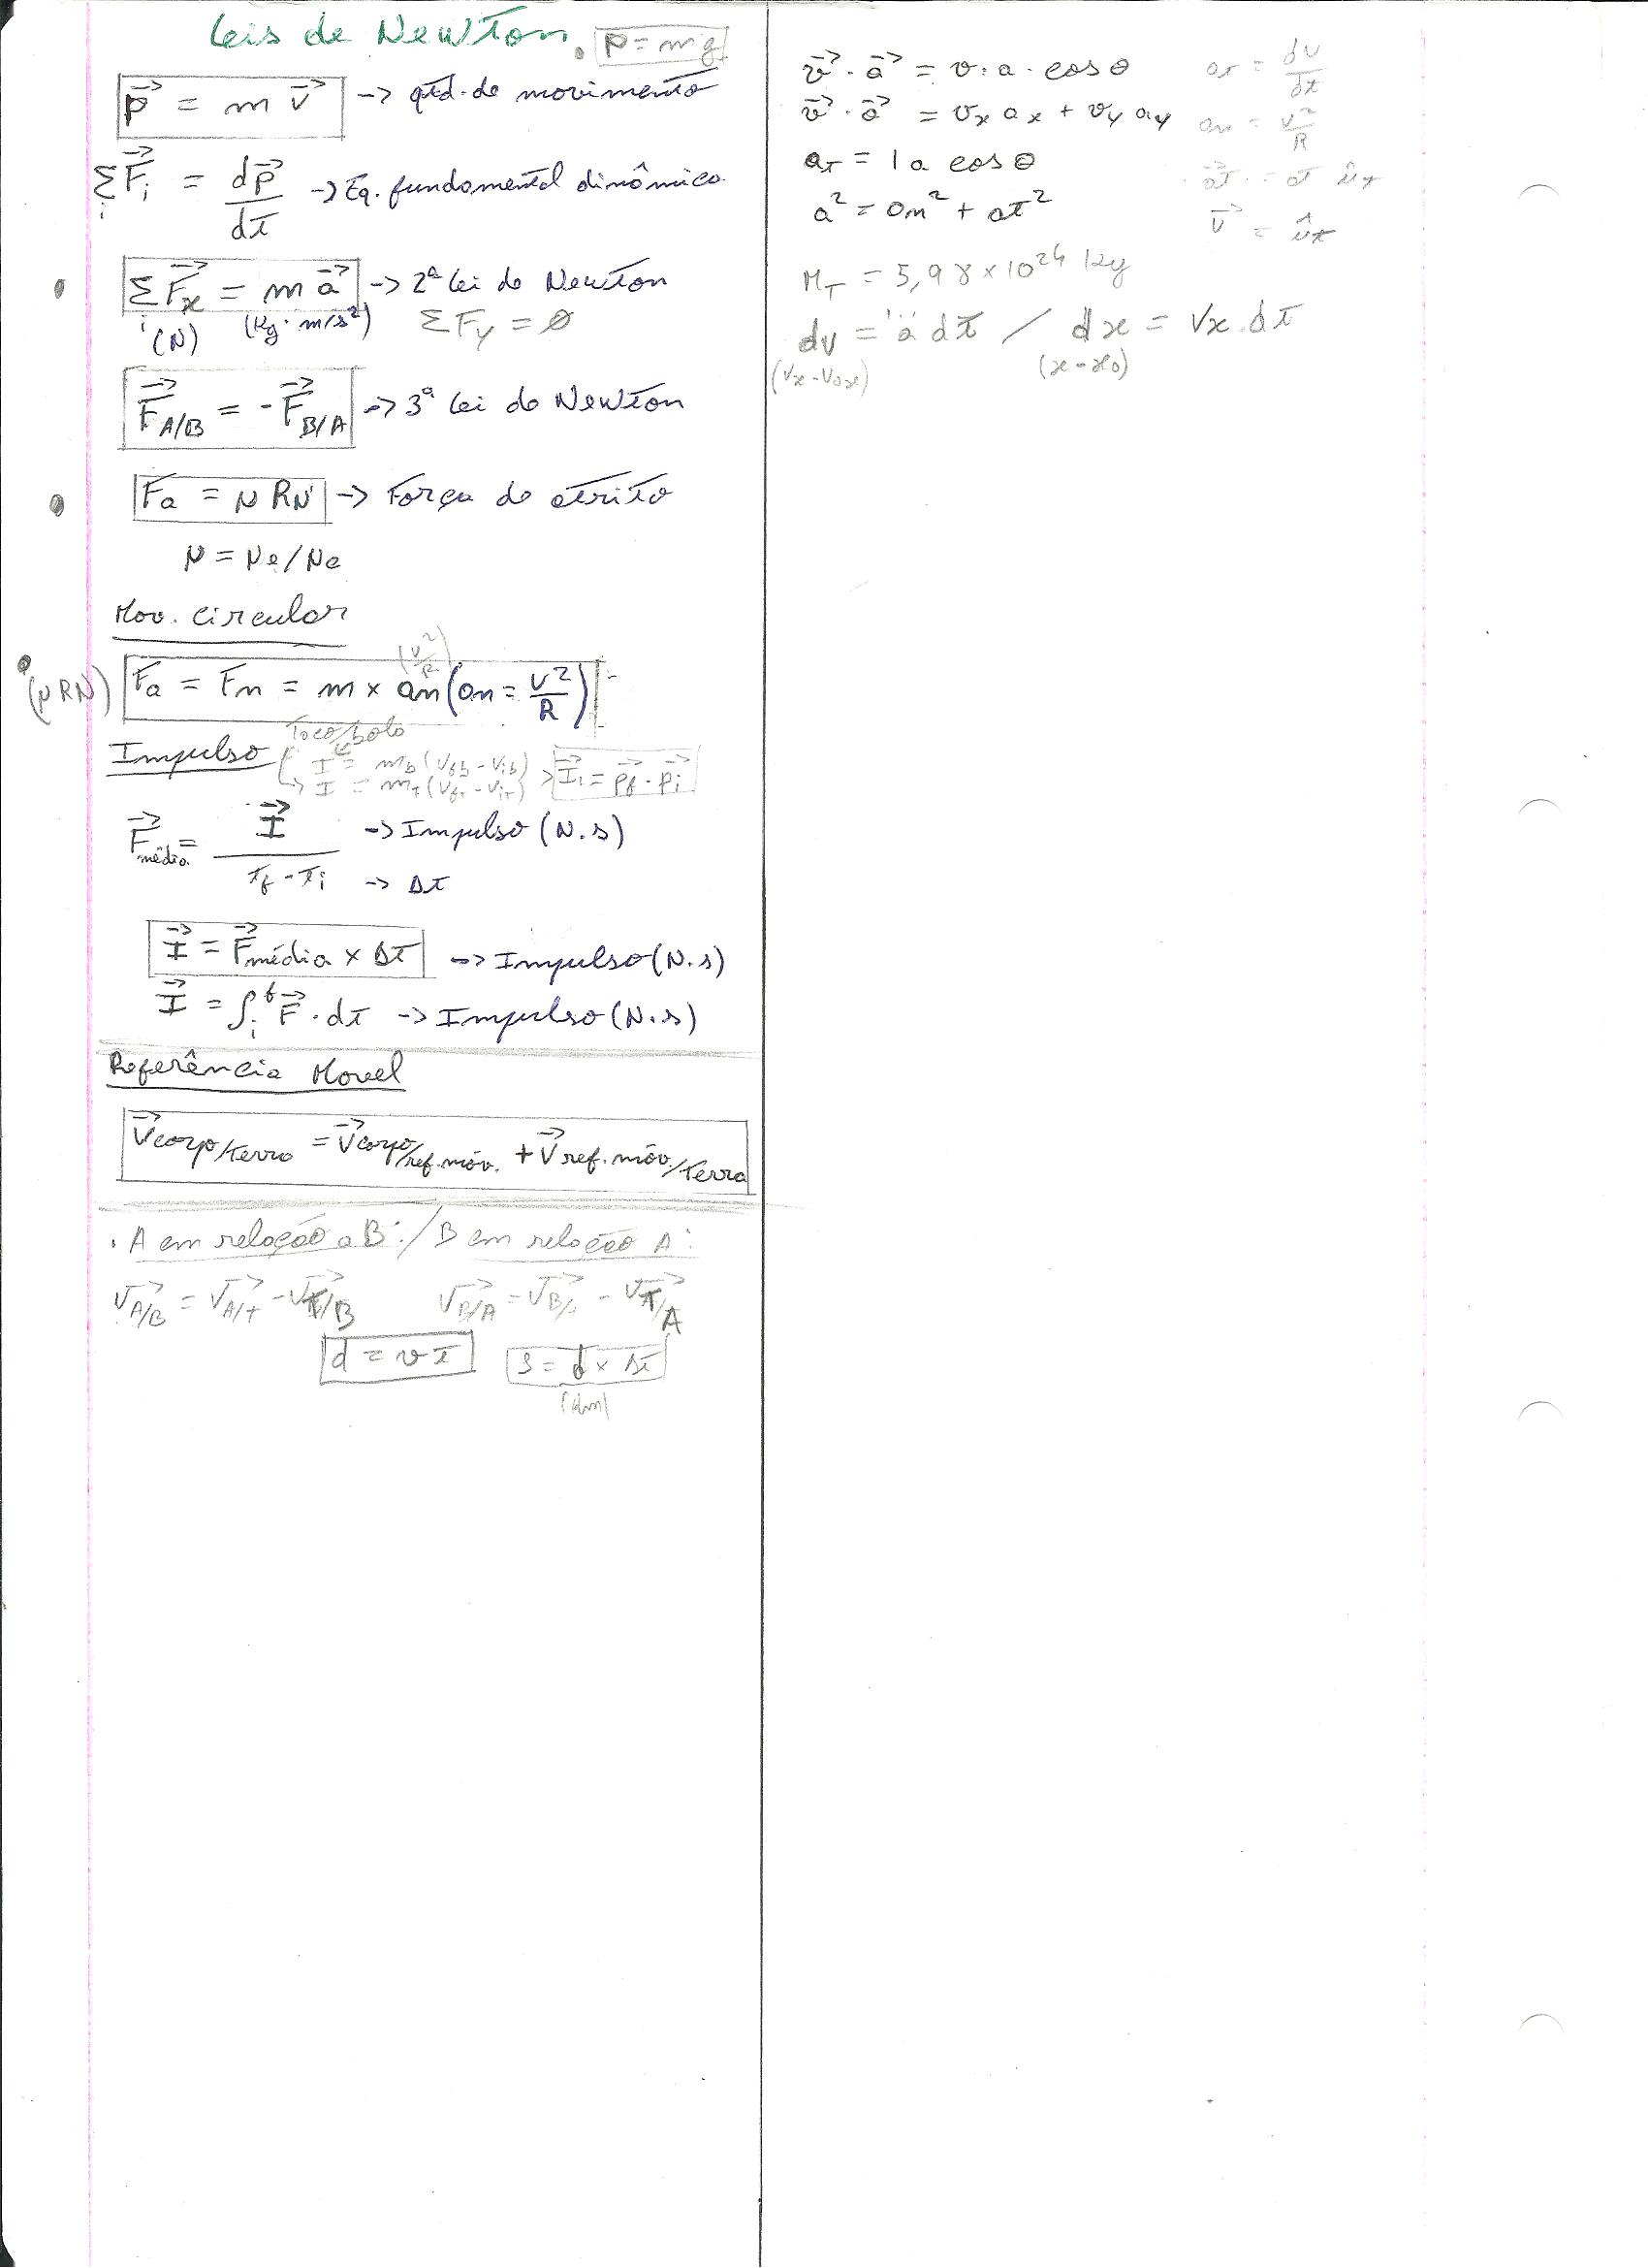 Leis de Newton. P = mg
p⃗ = m v⃗ -> qtd. de movimento
Σ F⃗i = dp⃗/dt -> Eq. fundamental dinâmica.
i
Σ F⃗x = m a⃗ -> 2ª Lei de Newton
i (N) (Kg · m/s²) Σ Fy = ∅
F⃗A/B = - F⃗B/A -> 3ª Lei de Newton
Fa = μ RN -> Força de atrito
μ = μe/μc
Mov. circular
(μ RN) Fa = Fn = m x an (an = v²/R)
(v²/R)
Impulso
I = mb (vfb - vib)
-> I = mT (vfT - viT) > I⃗i = p⃗f - p⃗i
F⃗média = I⃗ / tf - ti -> Impulso (N.s)
-> Δt
I⃗ = F⃗média x Δt -> Impulso (N.s)
I⃗ = ∫i^f F⃗ . dt -> Impulso (N.s)
Referência Movel
v⃗corpo/terra = v⃗corpo/ref.móv. + v⃗ref. móv./terra
. A em relação a B: / B em relação A:
v⃗A/B = v⃗A/T - v⃗T/B v⃗B/A = v⃗B/T - v⃗T/A
d = v t S = d x Δt
v⃗ . a⃗ = v . a . cos θ
v⃗ . a⃗ = vx ax + vy ay
aT = |a cos θ
a² = an² + at²
MT = 5,98 x 10²⁴ Kg
dv = a dt / dx = Vx . dt
(vx - v0x) (x - x0)
aT = dv/dt
an = v²/R
a⃗T = aT ûT
v⃗ = ûT